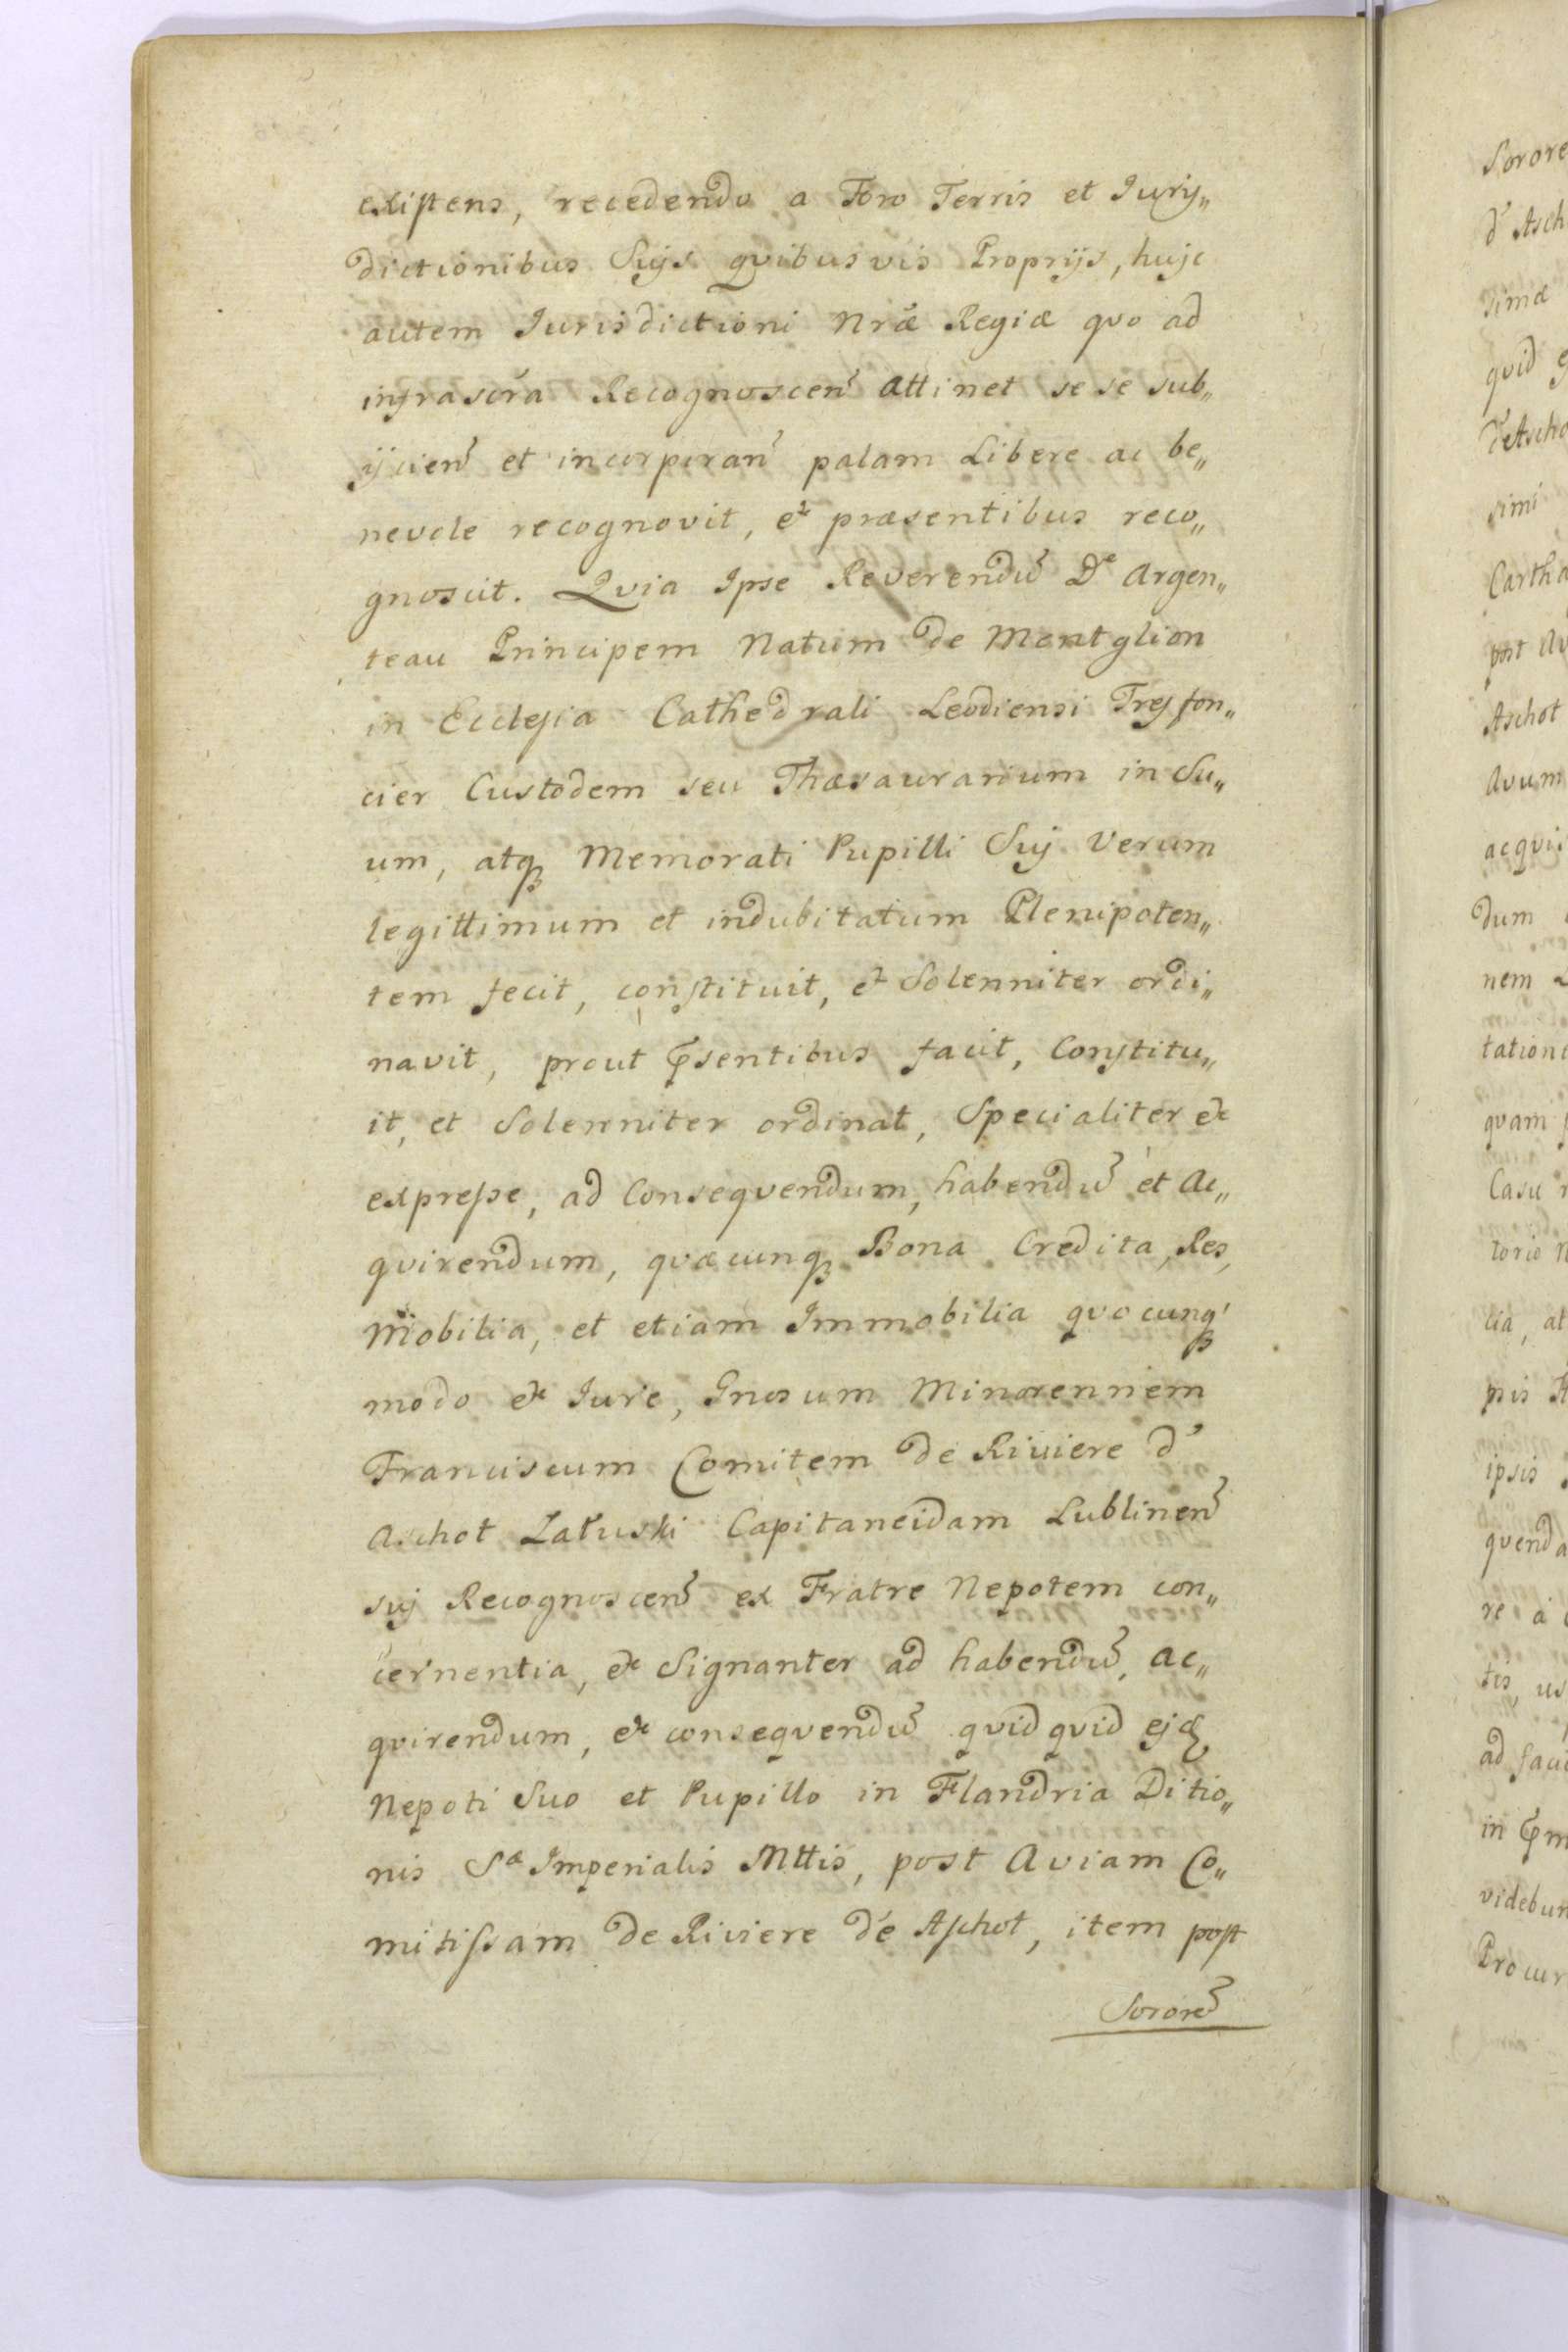 existens, recedendo a Foro Terris et Jurys„
dictionibus Suis quibusvis Proprijs, huic
autem Jurisdictioni Nrae Regiae quo ad
infrascra Recognoscen attinet se se sub„
ijcien et incorporan palam Libere ac be„
nevole recognovit, et praesentibus reco„
gnoscit. Quia Ipse Reverendu De Argen„
teau Principem Natum de Mentglion
in Ecclesia Cathedrali Leodiensi Tresfon„
cier Custodem seu Thaesaurarium in Su„
um, atq Memorati Pupilli Suj Verum
legittimum et indubitatum Plenipoten„
tem fecit, constituit, et Solenniter ordi„
navit, prout psentibus facit, Constitu„
it, et Solenniter ordinat, Specialiter et
expresse, ad Consequendum, habendu et Ac„
quirendum, quaecunq Bona Credita, Res,
Mobilia, et etiam Immobilia quocunq
modo et Jure, Gnosum Minorennem
Franciscum Comitem de Riviere d'
Aschot Załuski Capitaneidam Lublinen
suj Recognoscen ex Fratre Nepotem con„
cernentia, et Signanter ad habendu, ac„
quirendum, et consequendu quidquid ejd
Nepoti Suo et Pupillo in Flandria Ditio„
nis Sae Imperialis Mttis, post Aviam Co„
mitissam de Riviere de Aschot, item post
Sorore
Sorore
d' Asch
simae
quid
d'Ascho
simi
Cartha
post Av
Aschot
Avum
acqui
dum
nem
tatione
quam
Casu
torio
cia, at
psis
ipsis
quenda
re a
tis, us
ad faci
in
videbun
Procur